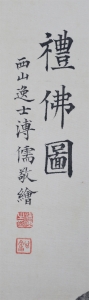 禮佛圖
西山逸士溥儒敬繪